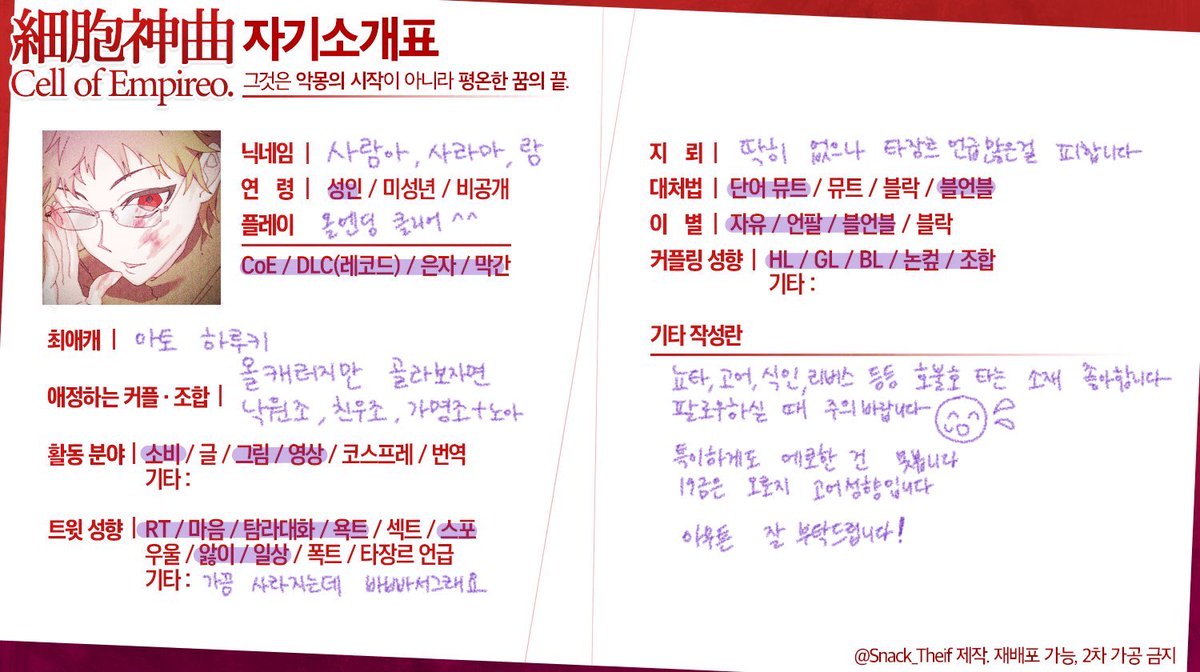 細胞神曲 자기소개표
Cell of Empireo. 그것은 악몽의 시작이 아니라 평온한 꿈의 끝.
닉네임 | 사람아, 사라마, 람
연 령 | 성인 / 미성년 / 비공개
플레이 올엔딩 클리어 ^^
CoE / DLC(레코드) / 은자 / 막간
최애캐 | 아토 하루키
올캐러지만 골라보자면
애정하는 커플 · 조합 | 낙원조, 친우조, 가명조+노아
활동 분야 | 소비 / 글 / 그림 / 영상 / 코스프레 / 번역
기타 :
트윗 성향 | RT / 마음 / 탐라대화 / 욕트 / 섹트 / 스포
우울 / 앓이 / 일상 / 폭트 / 타장르 언급
기타 : 가끔 사라지는데 바빠서그래요
지 뢰 | 딱히 없으나 타장르 언급많은걸 피합니다
대처법 | 단어 뮤트 / 뮤트 / 블락 / 블언블
이 별 | 자유 / 언팔 / 블언블 / 블락
커플링 성향 | HL / GL / BL / 논컾 / 조합
기타 :
기타 작성란
뇨타, 고어, 식인, 리버스 등등 호불호 타는 소재 좋아합니다
팔로우하실 때 주의바랍니다
특이하게도 에로한 건 못봅니다
19금은 오로지 고어성향입니다
아무튼 잘 부탁드립니다!
@Snack_Theif 제작. 재배포 가능, 2차 가공 금지